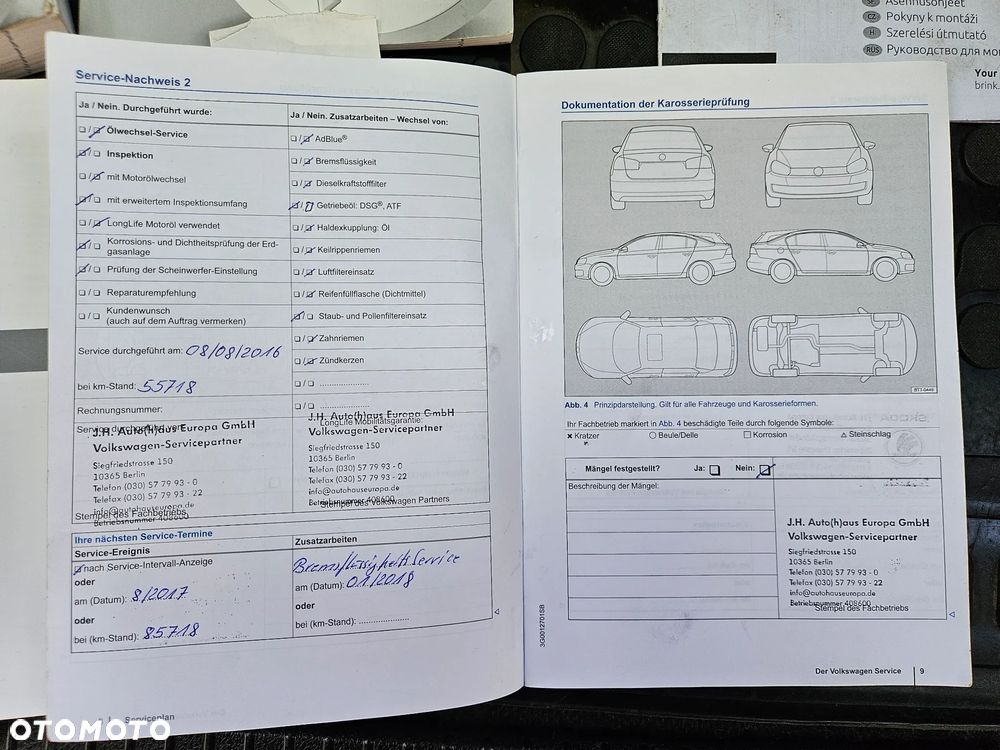 Asennusohjeet
CZ Pokyny k montáži
H Szerelési útmutató
RUS Руководство для мон
Your
brink.
Service-Nachweis 2
Ja / Nein. Durchgeführt wurde:
Ölwechsel-Service
Inspektion
mit Motorölwechsel
mit erweitertem Inspektionsumfang
LongLife Motoröl verwendet
Korrosions- und Dichtheitsprüfung der Erd-
gasanlage
Prüfung der Scheinwerfer-Einstellung
Reparaturempfehlung
Kundenwunsch
(auch auf dem Auftrag vermerken)
Service durchgeführt am: 08/08/2016
bei km-Stand: 55718
Rechnungsnummer:
Service durchgeführt von:
J.H. Auto(h)aus Europa GmbH
Volkswagen-Servicepartner
Siegfriedstrasse 150
10365 Berlin
Telefon (030) 57 79 93 - 0
Telefax (030) 57 79 93 - 22
info@autohauseuropa.de
Betriebsnummer 408600
Stempel des Fachbetriebs
Ja / Nein. Zusatzarbeiten – Wechsel von:
AdBlue®
Bremsflüssigkeit
Dieselkraftstofffilter
Getriebeöl: DSG®, ATF
Haldexkupplung: Öl
Keilrippenriemen
Luftfiltereinsatz
Reifenfüllflasche (Dichtmittel)
Staub- und Pollenfiltereinsatz
Zahnriemen
Zündkerzen
LongLife Mobilitätsgarantie:
J.H. Auto(h)aus Europa GmbH
Volkswagen-Servicepartner
Siegfriedstrasse 150
10365 Berlin
Telefon (030) 57 79 93 - 0
Telefax (030) 57 79 93 - 22
info@autohauseuropa.de
Betriebsnummer 408600
Stempel des Volkswagen Partners
Ihre nächsten Service-Termine
Service-Ereignis
nach Service-Intervall-Anzeige
oder
am (Datum): 8/2017
oder
bei (km-Stand): 85718
Zusatzarbeiten
Bremsflüssigkeits Service
am (Datum): 01/2018
oder
bei (km-Stand): ....................
Serviceplan
Dokumentation der Karosserieprüfung
BTT-0449
Abb. 4 Prinzipdarstellung. Gilt für alle Fahrzeuge und Karosserieformen.
Ihr Fachbetrieb markiert in Abb. 4 beschädigte Teile durch folgende Symbole:
Kratzer Beule/Delle Korrosion Steinschlag
Mängel festgestellt? Ja: Nein:
Beschreibung der Mängel:
J.H. Auto(h)aus Europa GmbH
Volkswagen-Servicepartner
Siegfriedstrasse 150
10365 Berlin
Telefon (030) 57 79 93 - 0
Telefax (030) 57 79 93 - 22
info@autohauseuropa.de
Betriebsnummer 408600
Stempel des Fachbetriebs
3G0012701SB
Der Volkswagen Service 9
OTOMOTO